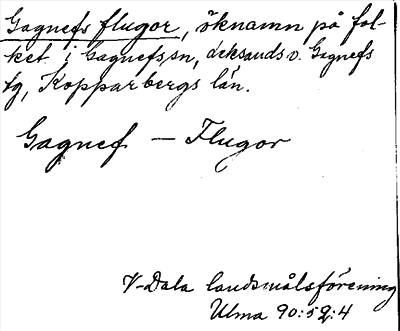 Gagnefs flugor, öknamn på fol-
ket i Gagnefs sn, Leksands o. Gagnefs
tg, Kopparbergs län.
Gagnef — Flugor
V-Dala landsmålsförening
Ulma 90:52:4